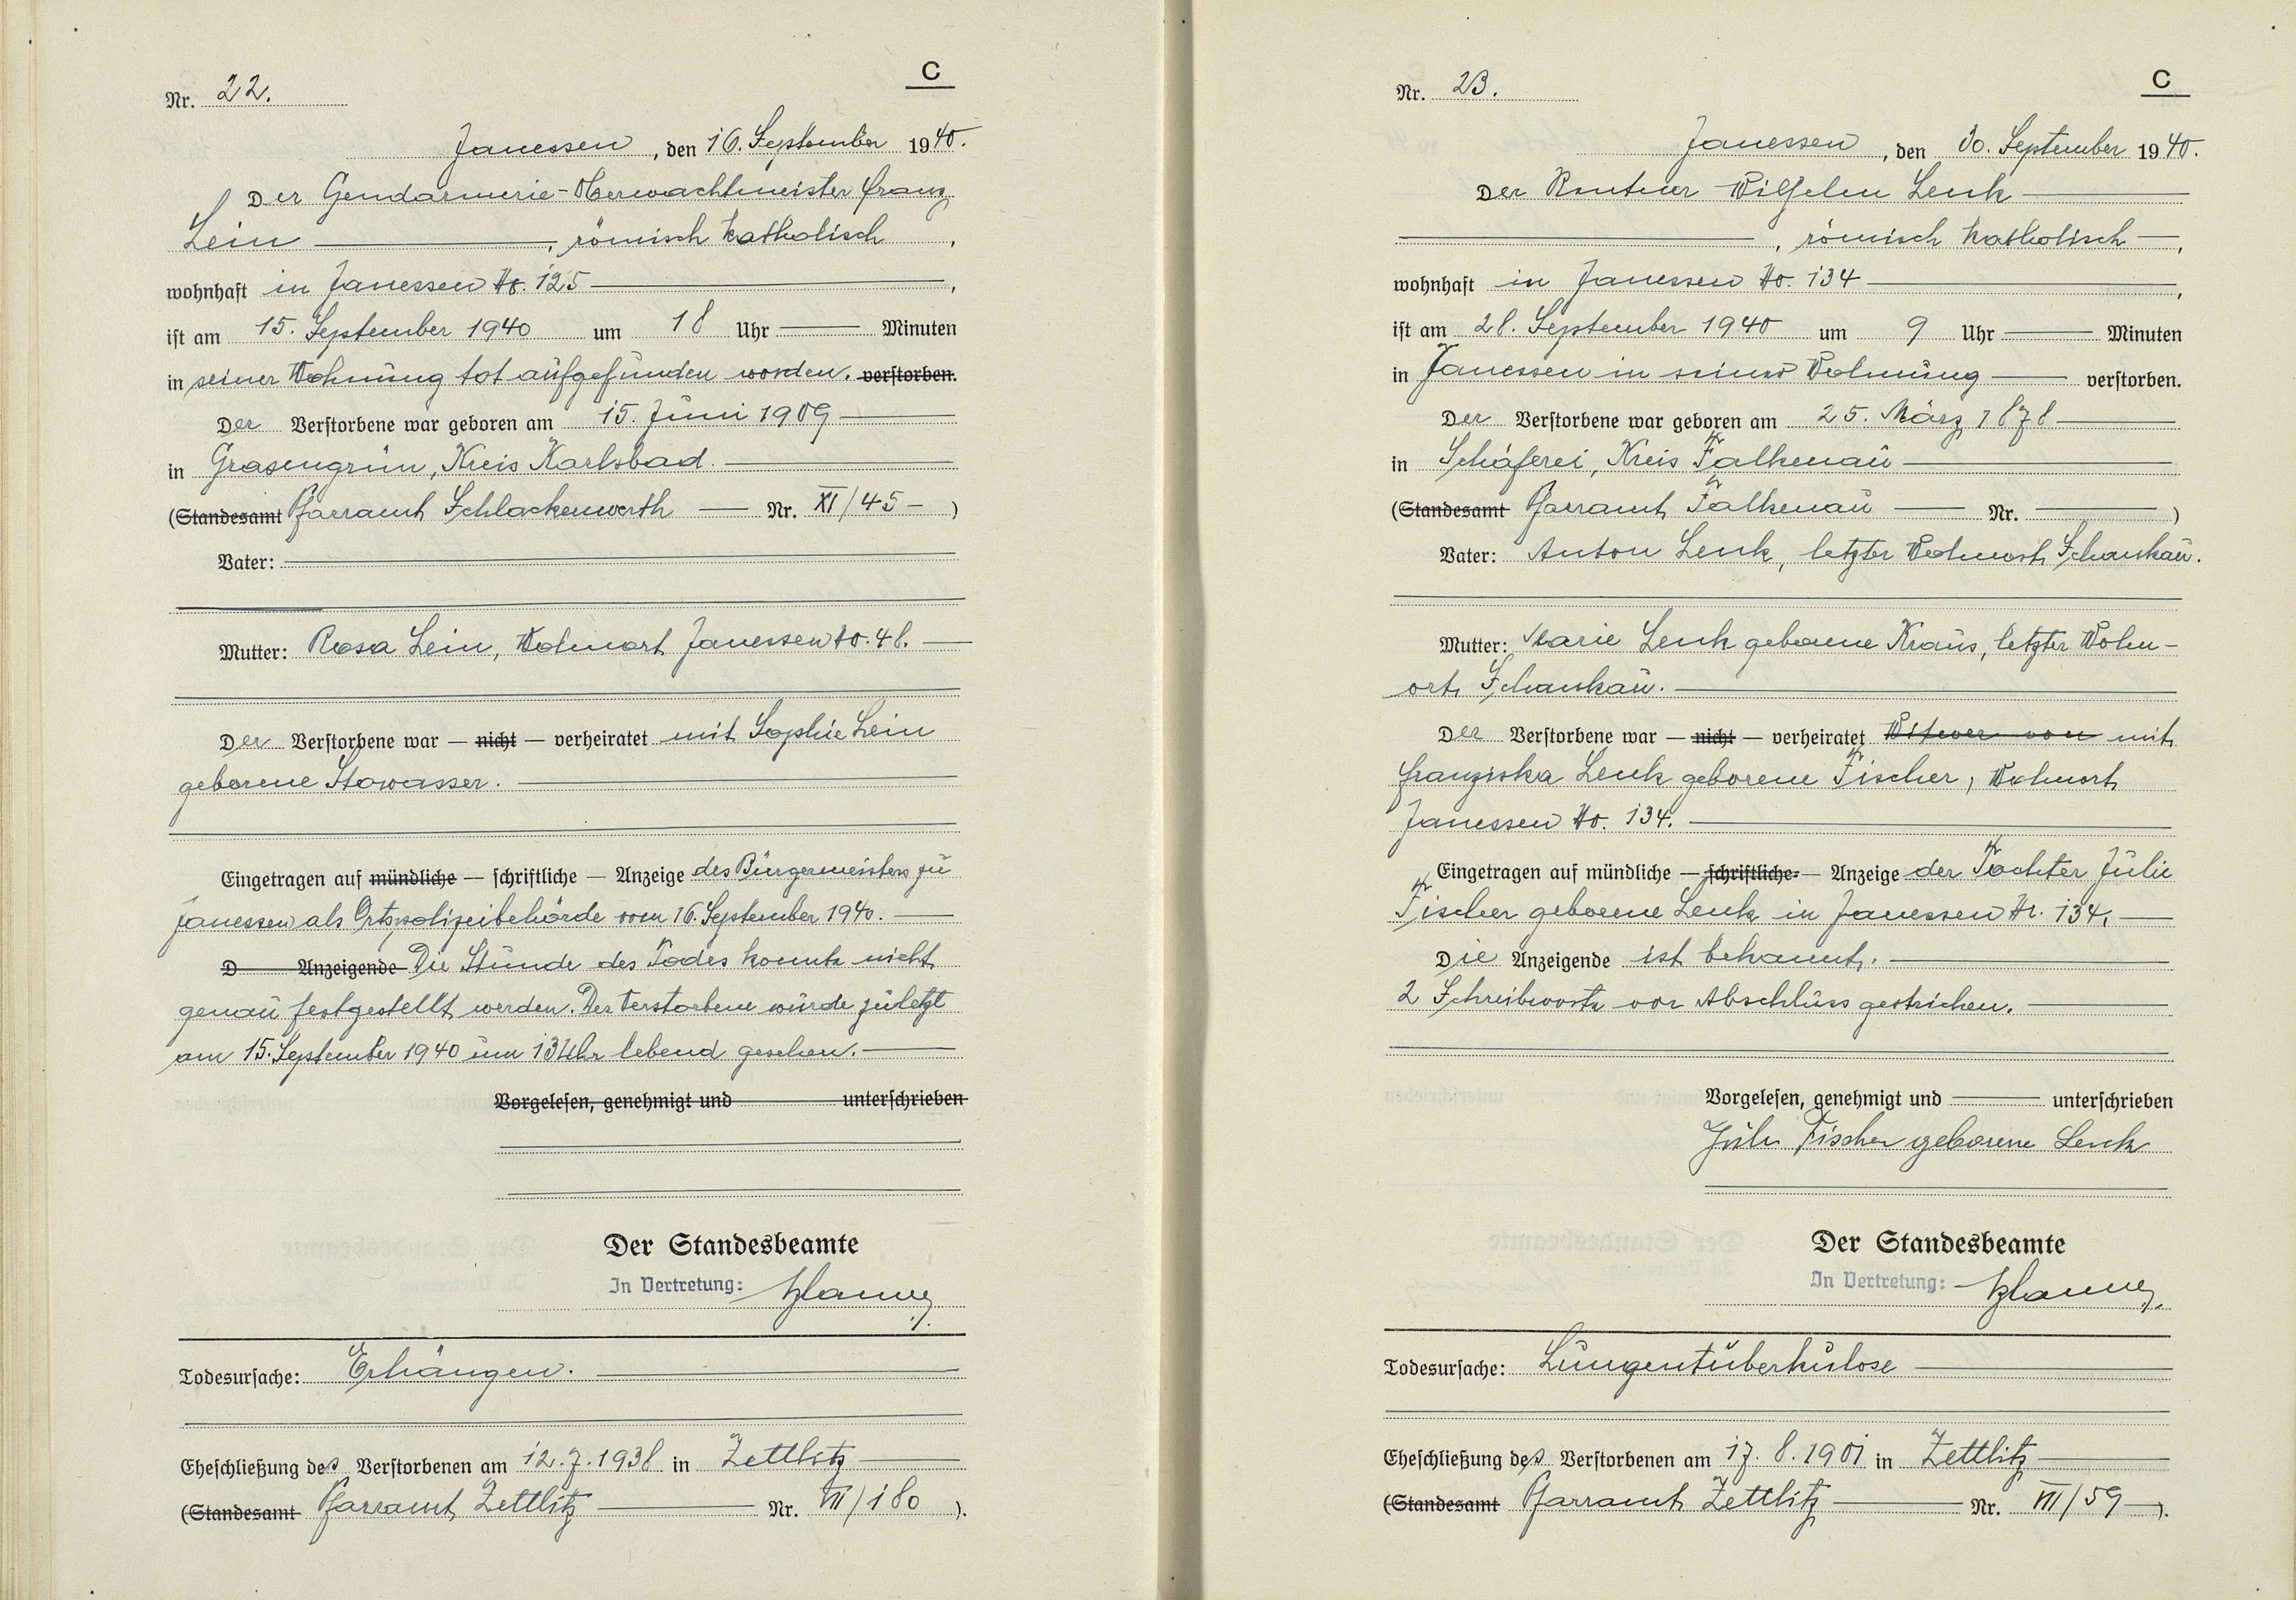 C
Nr. 22.
Janessen, den 16. September 1940.
Der Gendarmerie-Oberwachtmeister Franz
Lein, römisch katholisch,
wohnhaft in Janessen No. 125,
ist am 15. September 1940 um 18 Uhr Minuten
in seiner Wohnung tot aufgefunden worden. verstorben.
Der Verstorbene war geboren am 15. Juni 1909
in Grasengrün, Kreis Karlsbad.
(Standesamt Pfarramt Schlackenwerth Nr. XI/45)
Vater:
Mutter: Rosa Lein, Wohnort Janessen No. 48.
Der Verstorbene war — nicht — verheiratet mit Sophie Lein
geborene Stowasser.
Eingetragen auf mündliche — schriftliche — Anzeige des Bürgermeisters zu
Janessen als Ortspolizeibehörde vom 16. September 1940.
D Anzeigende Die Stunde des Todes konnte nicht
genau festgestellt werden. Der Verstorbene wurde zuletzt
am 15. September 1940 um 13 Uhr lebend gesehen.
Vorgelesen, genehmigt und unterschrieben
Der Standesbeamte
In Vertretung:
Todesursache: Erhängen.
Eheschließung des Verstorbenen am 12.7.1938 in Zettlitz
(Standesamt Pfarramt Zettlitz Nr. VII/180).
C
Nr. 23.
Janessen, den 30. September 1940.
Der Rentner Wilhelm Lenk
, römisch katholisch,
wohnhaft in Janessen No. 134,
ist am 28. September 1940 um 9 Uhr Minuten
in Janessen in seiner Wohnung verstorben.
Der Verstorbene war geboren am 25. März 1878
in Schäferei, Kreis Falkenau
(Standesamt Pfarramt Falkenau Nr. )
Vater: Anton Lenk, letzter Wohnort Schankau.
Mutter: Marie Lenk geborene Kraus, letzter Wohn-
ort Schankau.
Der Verstorbene war — nicht — verheiratet Witwer von mit
Franziska Lenk geborene Fischer, Wohnort
Janessen No. 134.
Eingetragen auf mündliche — schriftliche — Anzeige der Tochter Julie
Fischer geborene Lenk in Janessen Nr. 134.
Die Anzeigende ist bekannt.
2 Schreibworte vor Abschluss gestrichen.
Vorgelesen, genehmigt und unterschrieben
Julie Fischer geborene Lenk
Der Standesbeamte
In Vertretung:
Todesursache: Lungentuberkulose
Eheschließung des Verstorbenen am 17.8.1901 in Zettlitz
(Standesamt Pfarramt Zettlitz Nr. VII/59).